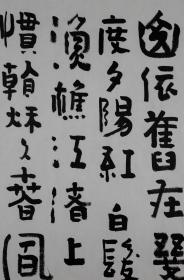 山依舊在幾
度夕陽紅白髮
漁樵江渚上
慣看秋月春風